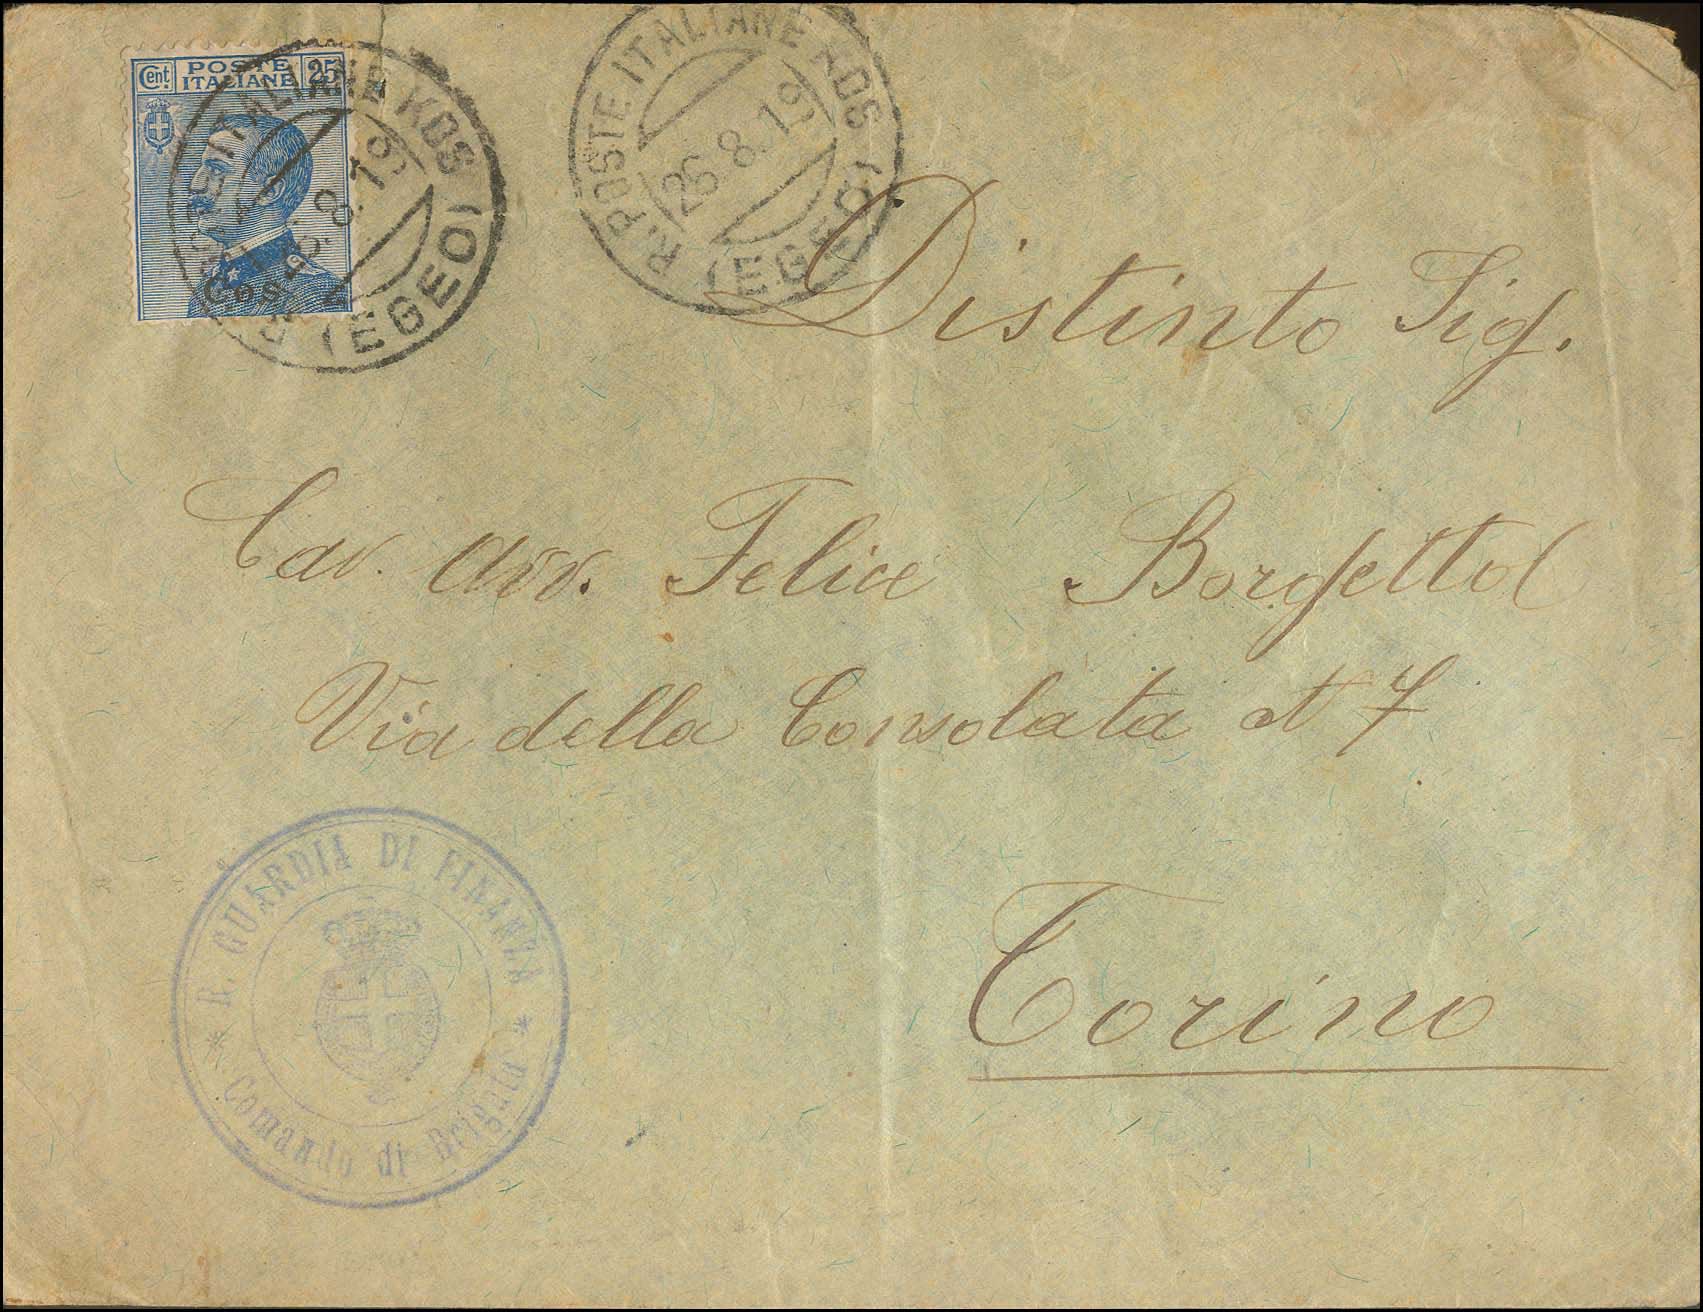 Cent. POSTE ITALIANE 25
Cos
R. POSTE ITALIANE KOS
26.8.19
(EGEO)
R. POSTE ITALIANE KOS
26.8.19
(EGEO)
Distinto Sig.
Cav. Avv. Felice Borgettol
Via della Consolata N 7
Torino
* R. GUARDIA DI FINANZA *
Comando di Brigata